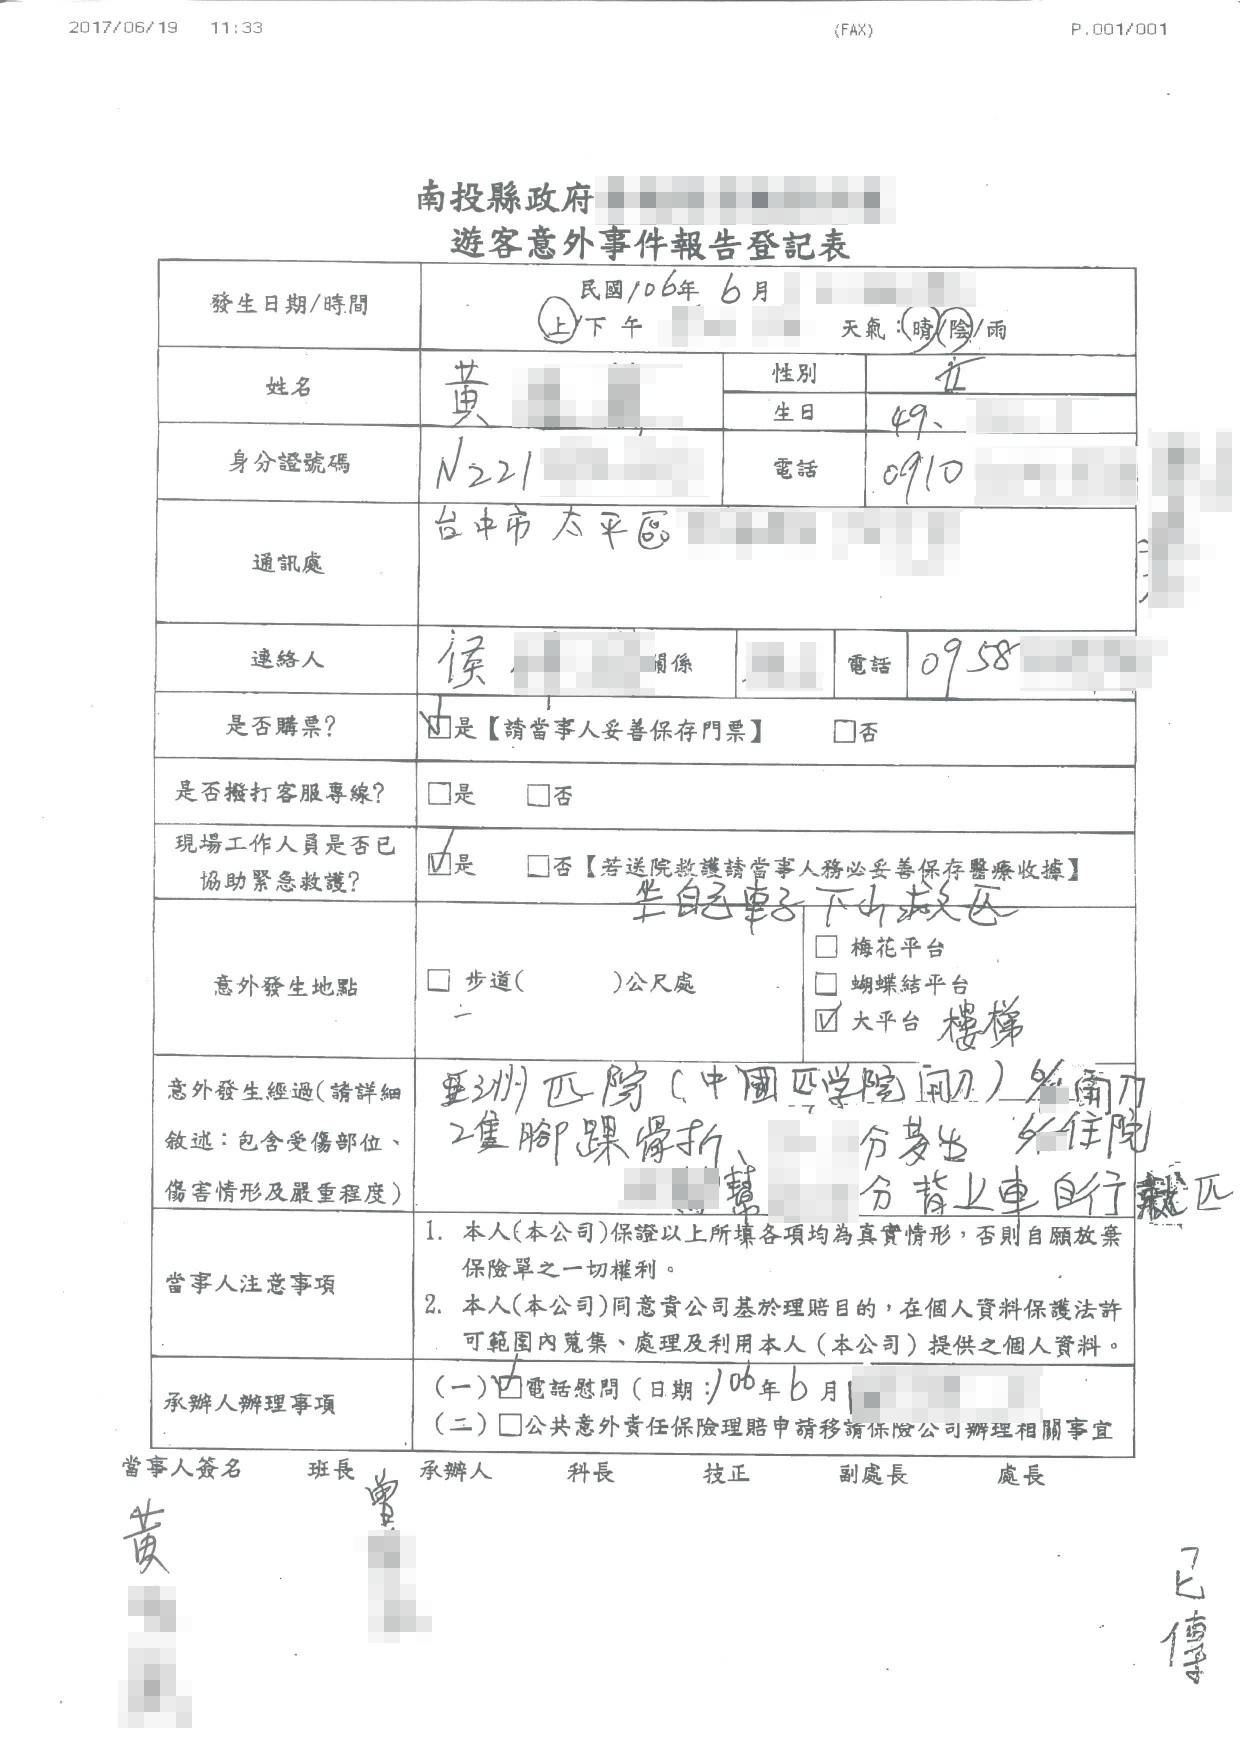 2017/06/19 11:33 (FAX) P.001/001
南投縣政府
遊客意外事件報告登記表
發生日期/時間
民國106年 6月
上/下 午 天氣:晴/陰/雨
姓名 黃 性別 女
生日 49、
身分證號碼 N221 電話 0910
通訊處 台中市 太平區
連絡人 侯 關係 電話 0958
是否購票? ☑是【請當事人妥善保存門票】 □否
是否撥打客服專線? □是 □否
現場工作人員是否已
協助緊急救護?
☑是 □否【若送院救護請當事人務必妥善保存醫療收據】
坐自己車子下山就医
意外發生地點
□ 步道( )公尺處
□ 梅花平台
□ 蝴蝶結平台
☑ 大平台 樓梯
意外發生經過(請詳細
敘述:包含受傷部位、
傷害情形及嚴重程度)
亞洲医院(中國医学院開刀) 6/ 開刀
2隻腳踝骨折、 分發生 6/ 住院
幫 分背上車自行就医
當事人注意事項
1. 本人(本公司)保證以上所填各項均為真實情形，否則自願放棄
保險單之一切權利。
2. 本人(本公司)同意貴公司基於理賠目的，在個人資料保護法許
可範圍內蒐集、處理及利用本人(本公司)提供之個人資料。
承辦人辦理事項
(一)☑電話慰問(日期:106年6月
(二)□公共意外責任保險理賠申請移請保險公司辦理相關事宜
當事人簽名 班長 承辦人 科長 技正 副處長 處長
黃
曾
已傳